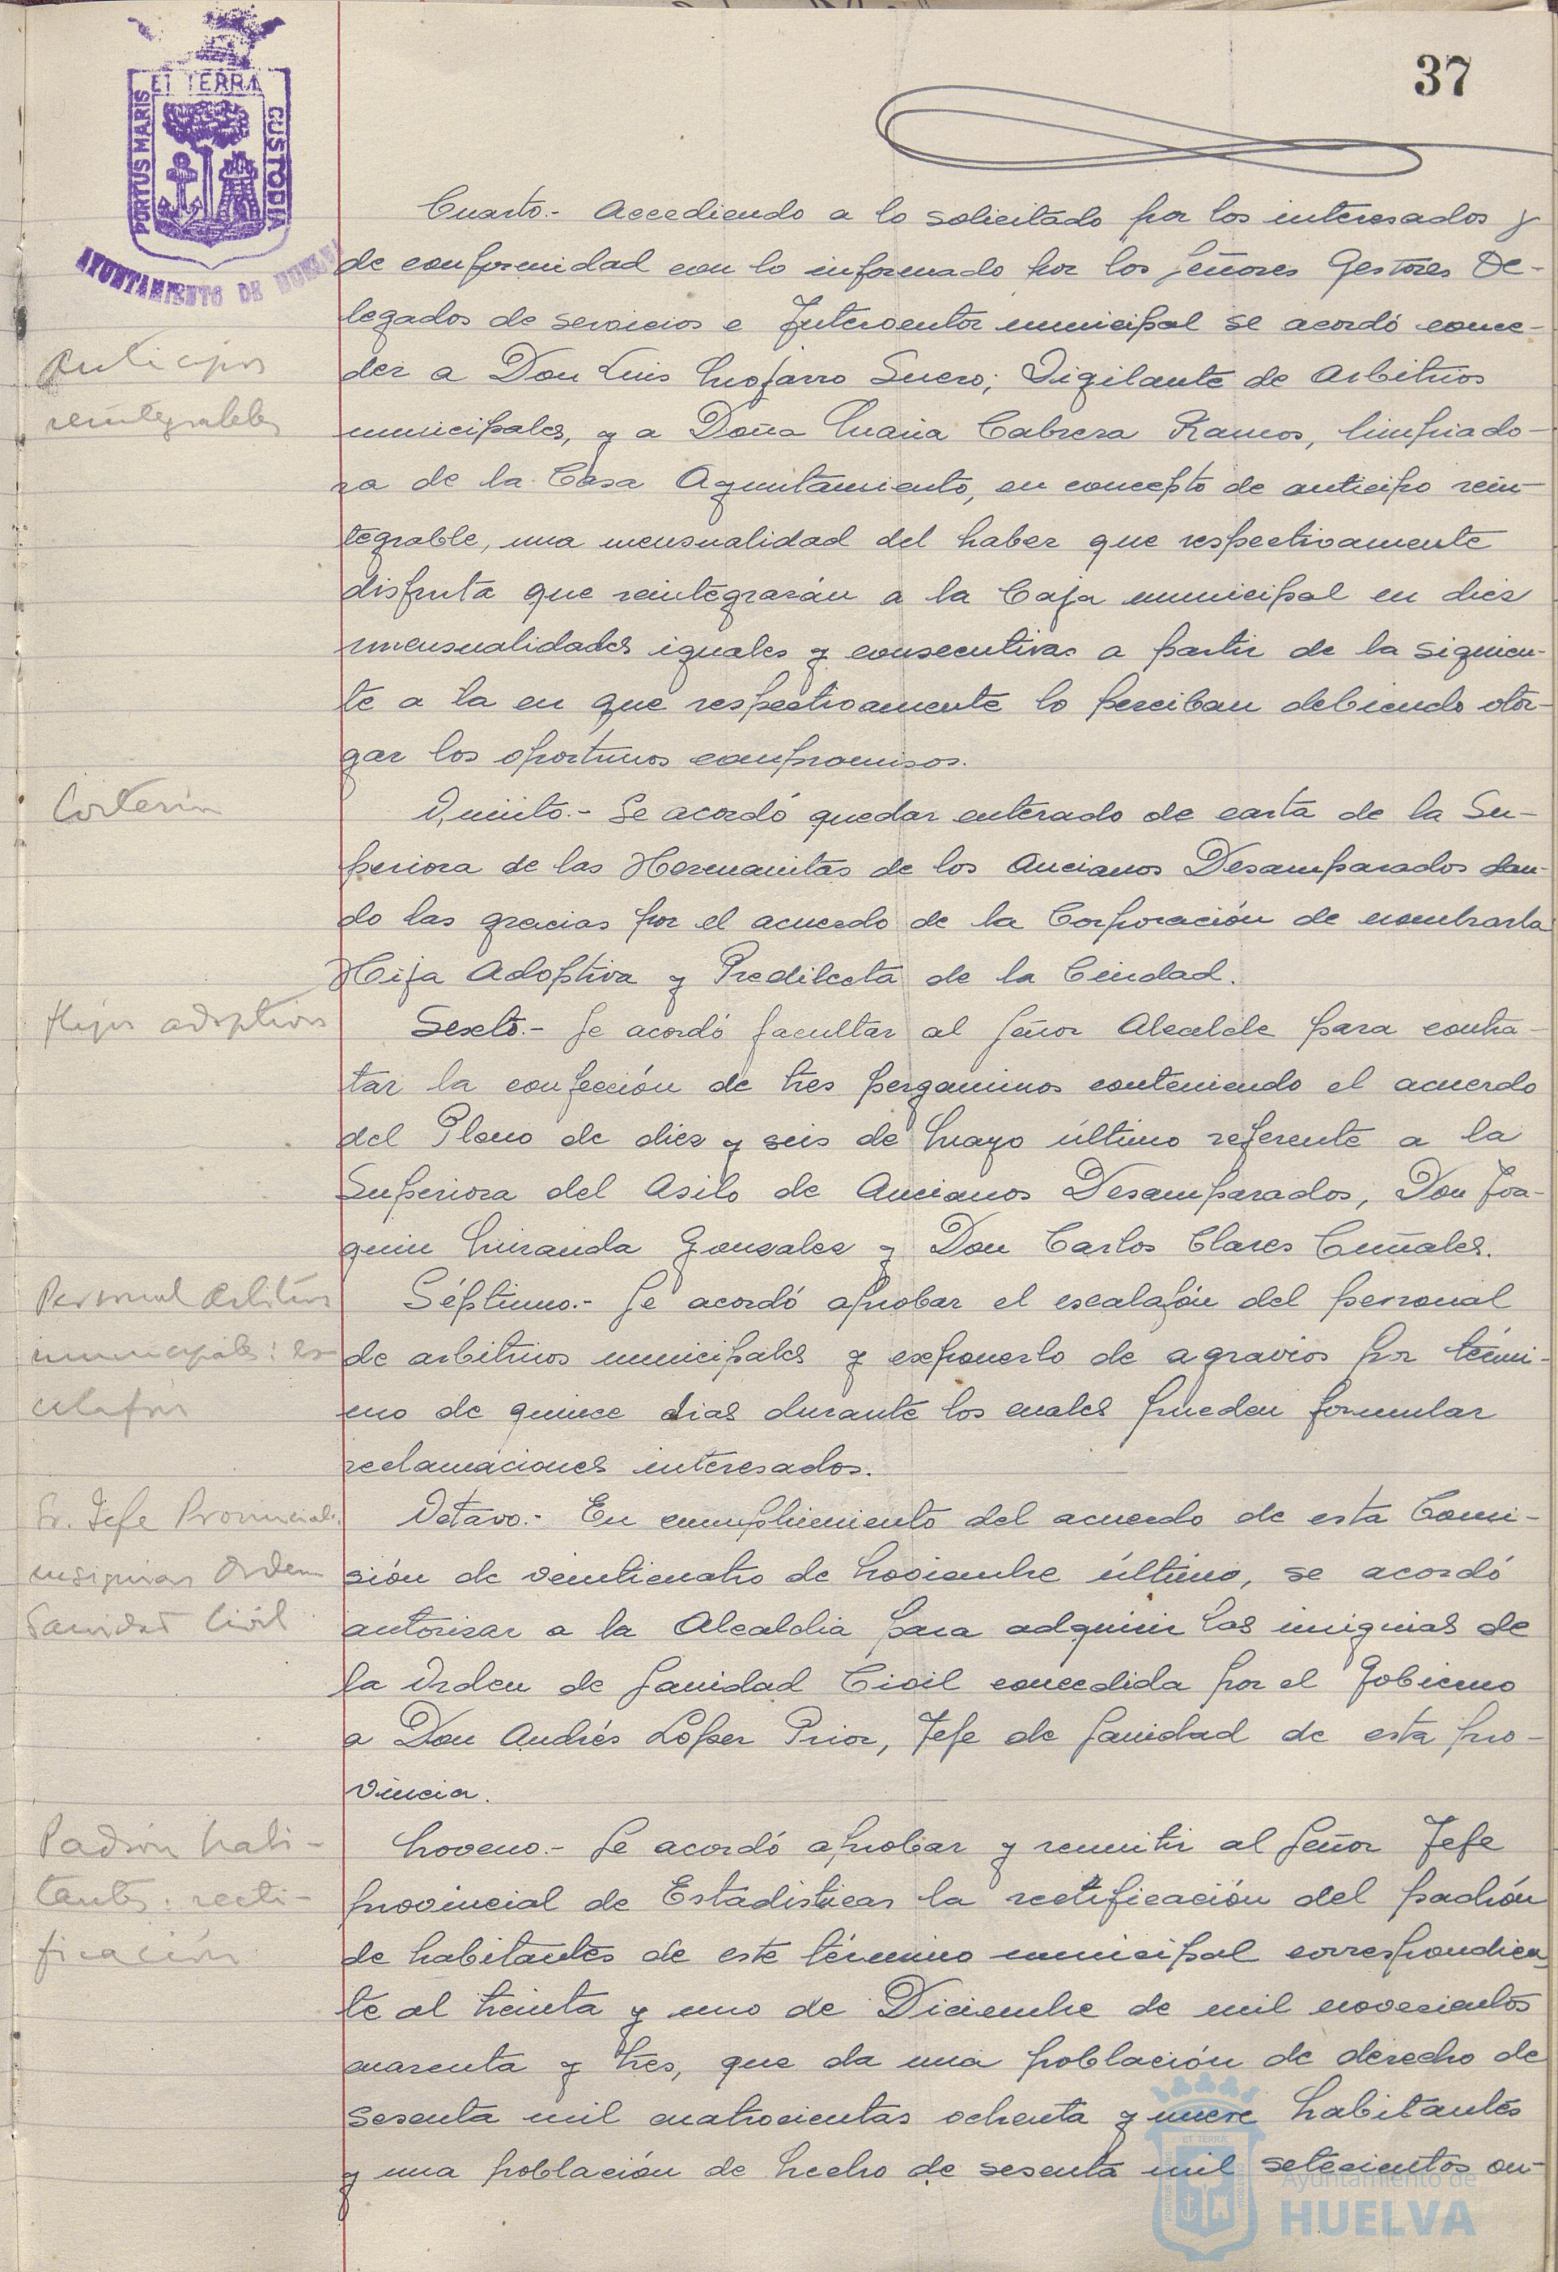 37
ET TERRA
PORTUS MARIS
CUSTODIA
AYUNTAMIENTO DE HUELVA
Cuarto.- Accediendo a lo solicitado por los interesados y
de conformidad con lo informado por los Señores Gestores De-
legados de servicios e Interventor municipal se acordó conce-
Anticipos
der a Don Luis Mojarro Suero; Vigilante de Arbitrios
reintegrables
municipales, y a Doña Maria Cabrera Ramos, limpiado-
ra de la Casa Ayuntamiento, en concepto de anticipo rein-
tegrable, una mensualidad del haber que respectivamente
disfruta que reintegrarán a la Caja municipal en diez
mensualidades iguales y consecutivas a partir de la siguien-
te a la en que respectivamente lo perciban debiendo otor-
gar los oportunos compromisos.
Cortesía
Quinto.- Se acordó quedar enterado de carta de la Su-
periora de las Hermanitas de los Ancianos Desamparados dan-
do las gracias por el acuerdo de la Corporación de nombrarla
Hija Adoptiva y Predilecta de la Ciudad.
Hijos adoptivos
Sexto.- Se acordó facultar al Señor Alcalde para contra-
tar la confección de tres pergaminos conteniendo el acuerdo
del Pleno de diez y seis de Mayo último referente a la
Superiora del Asilo de Ancianos Desamparados, Don Joa-
quin Miranda Gonzalez y Don Carlos Clares Cuñales.
Personal Arbitrios
Séptimo.- Se acordó aprobar el escalafón del personal
municipales: es-
de arbitrios municipales y exponerlo de agravios por térmi-
calafón
no de quince dias durante los cuales pueden formular
reclamaciones interesados.
Sr. Jefe Provincial.
Octavo.- En cumplimiento del acuerdo de esta Comi-
insignias Orden
sión de veinticuatro de Noviembre último, se acordó
Sanidad Civil
autorizar a la Alcaldia para adquirir las insignias de
la Orden de Sanidad Civil concedida por el Gobierno
a Don Andrés López Prior, Jefe de Sanidad de esta pro-
vincia.
Padrón habi-
Noveno.- Se acordó aprobar y remitir al Señor Jefe
tantes: recti-
provincial de Estadisticas la rectificación del padrón
ficación
de habitantes de este término municipal correspondien-
te al treinta y uno de Diciembre de mil novecientos
cuarenta y tres, que da una población de derecho de
sesenta mil cuatrocientas ochenta y nueve habitantes
y una población de hecho de sesenta mil setecientos on-
Ayuntamiento de
HUELVA